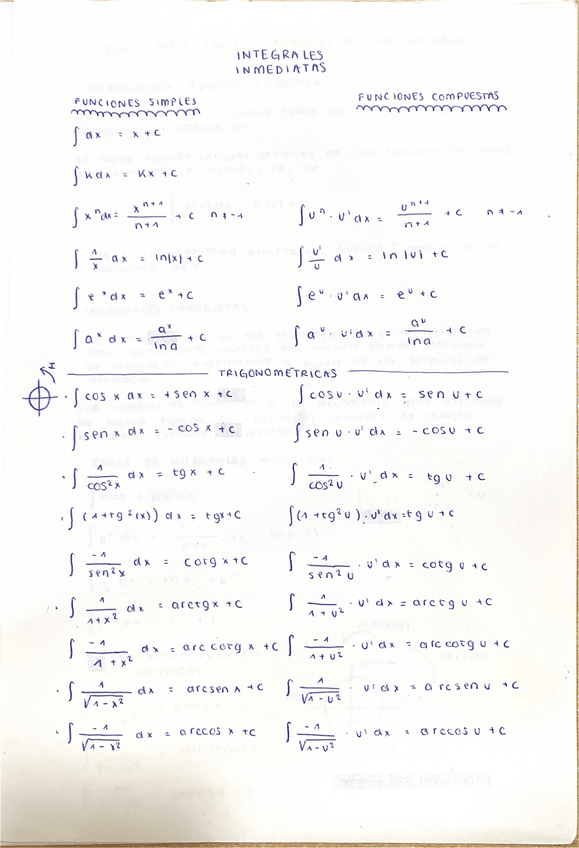 INTEGRALES
INMEDIATAS
FUNCIONES SIMPLES FUNCIONES COMPUESTAS
∫ dx = x + C
∫ K dx = Kx + C
∫ xⁿ dx = xⁿ⁺¹/n+1 + C n ≠ -1 ∫ uⁿ · u' dx = uⁿ⁺¹/n+1 + C n ≠ -1
∫ 1/x dx = ln|x| + C ∫ u'/u dx = ln|u| + C
∫ eˣ dx = eˣ + C ∫ eᵘ · u' dx = eᵘ + C
∫ aˣ dx = aˣ/ln a + C ∫ aᵘ · u' dx = aᵘ/ln a + C
TRIGONOMETRICAS
· ∫ cos x dx = + sen x + C ∫ cos u · u' dx = sen u + C
· ∫ sen x dx = - cos x + C ∫ sen u · u' dx = - cos u + C
· ∫ 1/cos²x dx = tg x + C ∫ 1/cos²u · u' dx = tg u + C
· ∫ (1 + tg²(x)) dx = tg x + C ∫ (1 + tg²u) · u' dx = tg u + C
∫ -1/sen²x dx = cotg x + C ∫ -1/sen²u · u' dx = cotg u + C
· ∫ 1/1+x² dx = arctg x + C ∫ 1/1+u² · u' dx = arctg u + C
∫ -1/1+x² dx = arc cotg x + C ∫ -1/1+u² · u' dx = arc cotg u + C
· ∫ 1/√1-x² dx = arcsen x + C ∫ 1/√1-u² · u' dx = arcsen u + C
· ∫ -1/√1-x² dx = arccos x + C ∫ -1/√1-u² · u' dx = arccos u + C